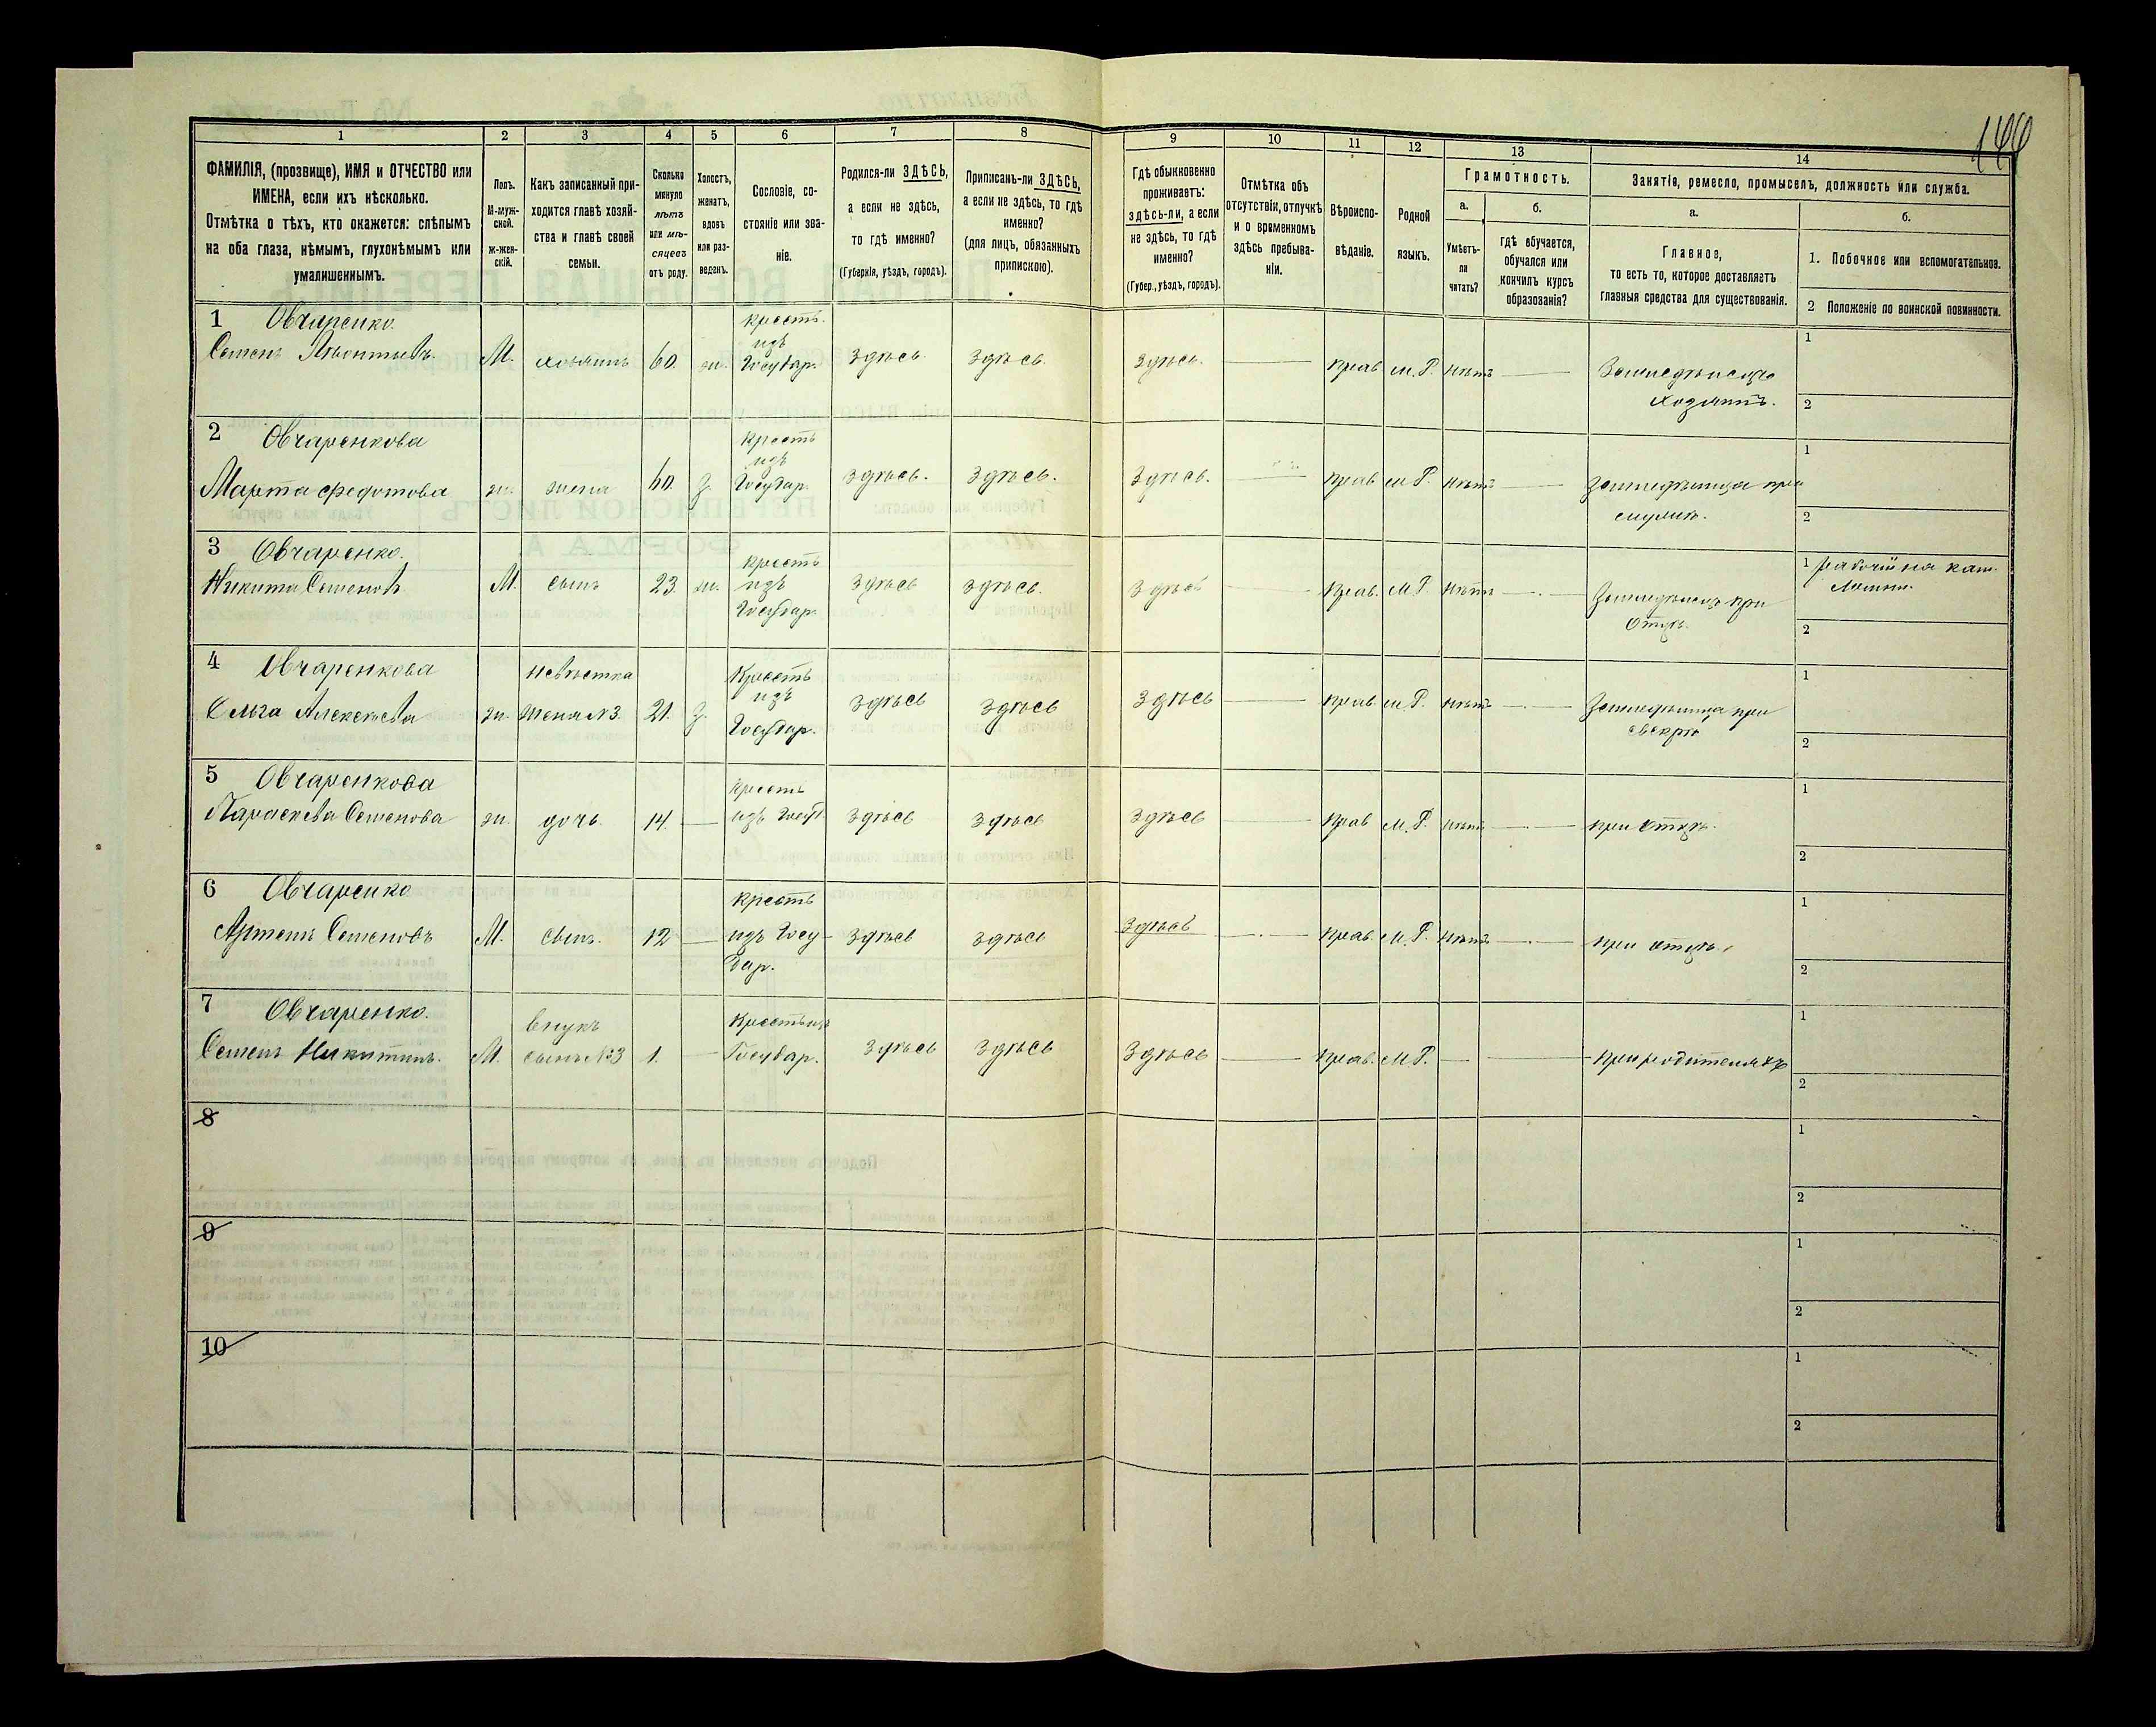 144
1 2 3 4 5 6 7 8 9 10 11 12 13 14
ФАМИЛІЯ, (прозвище), ИМЯ и ОТЧЕСТВО или
ИМЕНА, если ихъ нѣсколько.
Отмѣтка о тѣхъ, кто окажется: слѣпымъ
на оба глаза, нѣмымъ, глухонѣмымъ или
умалишеннымъ.
Полъ.
М-муж-
ской.
ж-жен-
скій.
Какъ записанный при-
ходится главѣ хозяй-
ства и главѣ своей
семьи.
Сколько
минуло
лѣтъ
или мѣ-
сяцевъ
отъ роду.
Холостъ,
женатъ,
вдовъ
или раз-
веденъ.
Сословіе, со-
стояніе или зва-
ніе.
Родился-ли ЗДѢСЬ,
а если не здѣсь,
то гдѣ именно?
(Губернія, уѣздъ, городъ).
Приписанъ-ли ЗДѢСЬ,
а если не здѣсь, то гдѣ
именно?
(для лицъ, обязанныхъ
припискою).
Гдѣ обыкновенно
проживаетъ:
здѣсь-ли, а если
не здѣсь, то гдѣ
именно?
(Губер., уѣздъ, городъ).
Отмѣтка объ
отсутствіи, отлучкѣ
и о временномъ
здѣсь пребыва-
ніи.
Вѣроиспо-
вѣданіе.
Родной
языкъ.
Грамотность.
а.
Умѣетъ-
ли
читать?
б.
Гдѣ обучается,
обучался или
кончилъ курсъ
образованія?
Занятіе, ремесло, промыселъ, должность или служба.
а.
Главное,
то есть то, которое доставляетъ
главныя средства для существованія.
б.
1. Побочное или вспомогательное.
2 Положеніе по воинской повинности.
1 Овчаренко
Семенъ Леонтьевъ. М. хозяинъ 60. ж. крестъ. изъ Государ. Здѣсь. Здѣсь. Здѣсь. прав. М.Р. нѣтъ Земледѣлецъ
хозяинъ. 1
2
2 Овчаренкова
Марта Федотова ж. жена 60. З. крестъ изъ Государ. Здѣсь. Здѣсь. Здѣсь. прав М.Р. нѣтъ Земледѣлица при
мужѣ. 1
2
3 Овчаренко.
Никита Семеновъ М. сынъ 23. ж. крестъ изъ Государ. Здѣсь Здѣсь. Здѣсь прав. М.Р. нѣтъ Земледѣлецъ при
отцѣ. 1 рабочій на
2
4 Овчаренкова
Ольга Алексѣева ж. невѣстка
жена №3. 21. З. Крестъ изъ Государ. Здѣсь Здѣсь Здѣсь прав. М.Р. нѣтъ Земледѣлица при
свекрѣ 1
2
5 Овчаренкова
Параскева Семенова ж. дочь. 14. крестъ изъ Госуд. Здѣсь Здѣсь Здѣсь прав М.Р. нѣтъ при отцѣ. 1
2
6 Овчаренко
Артемъ Семеновъ М. сынъ. 12 крестъ изъ Госу-
дар. Здѣсь Здѣсь Здѣсь прав. М.Р. нѣтъ при отцѣ. 1
2
7 Овчаренко.
Семенъ Никитинъ. М. внукъ
сынъ №3 1. Крестъ изъ
Государ. Здѣсь Здѣсь Здѣсь прав. М.Р. при родителяхъ 1
2
8 1
2
9 1
2
10 1
2